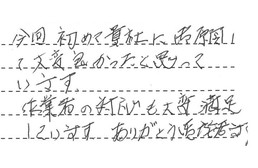 今回初めて貴社にお願いし
て大変良かったと思って
います。
作業者の対応も大変満足
しています ありがとうございます